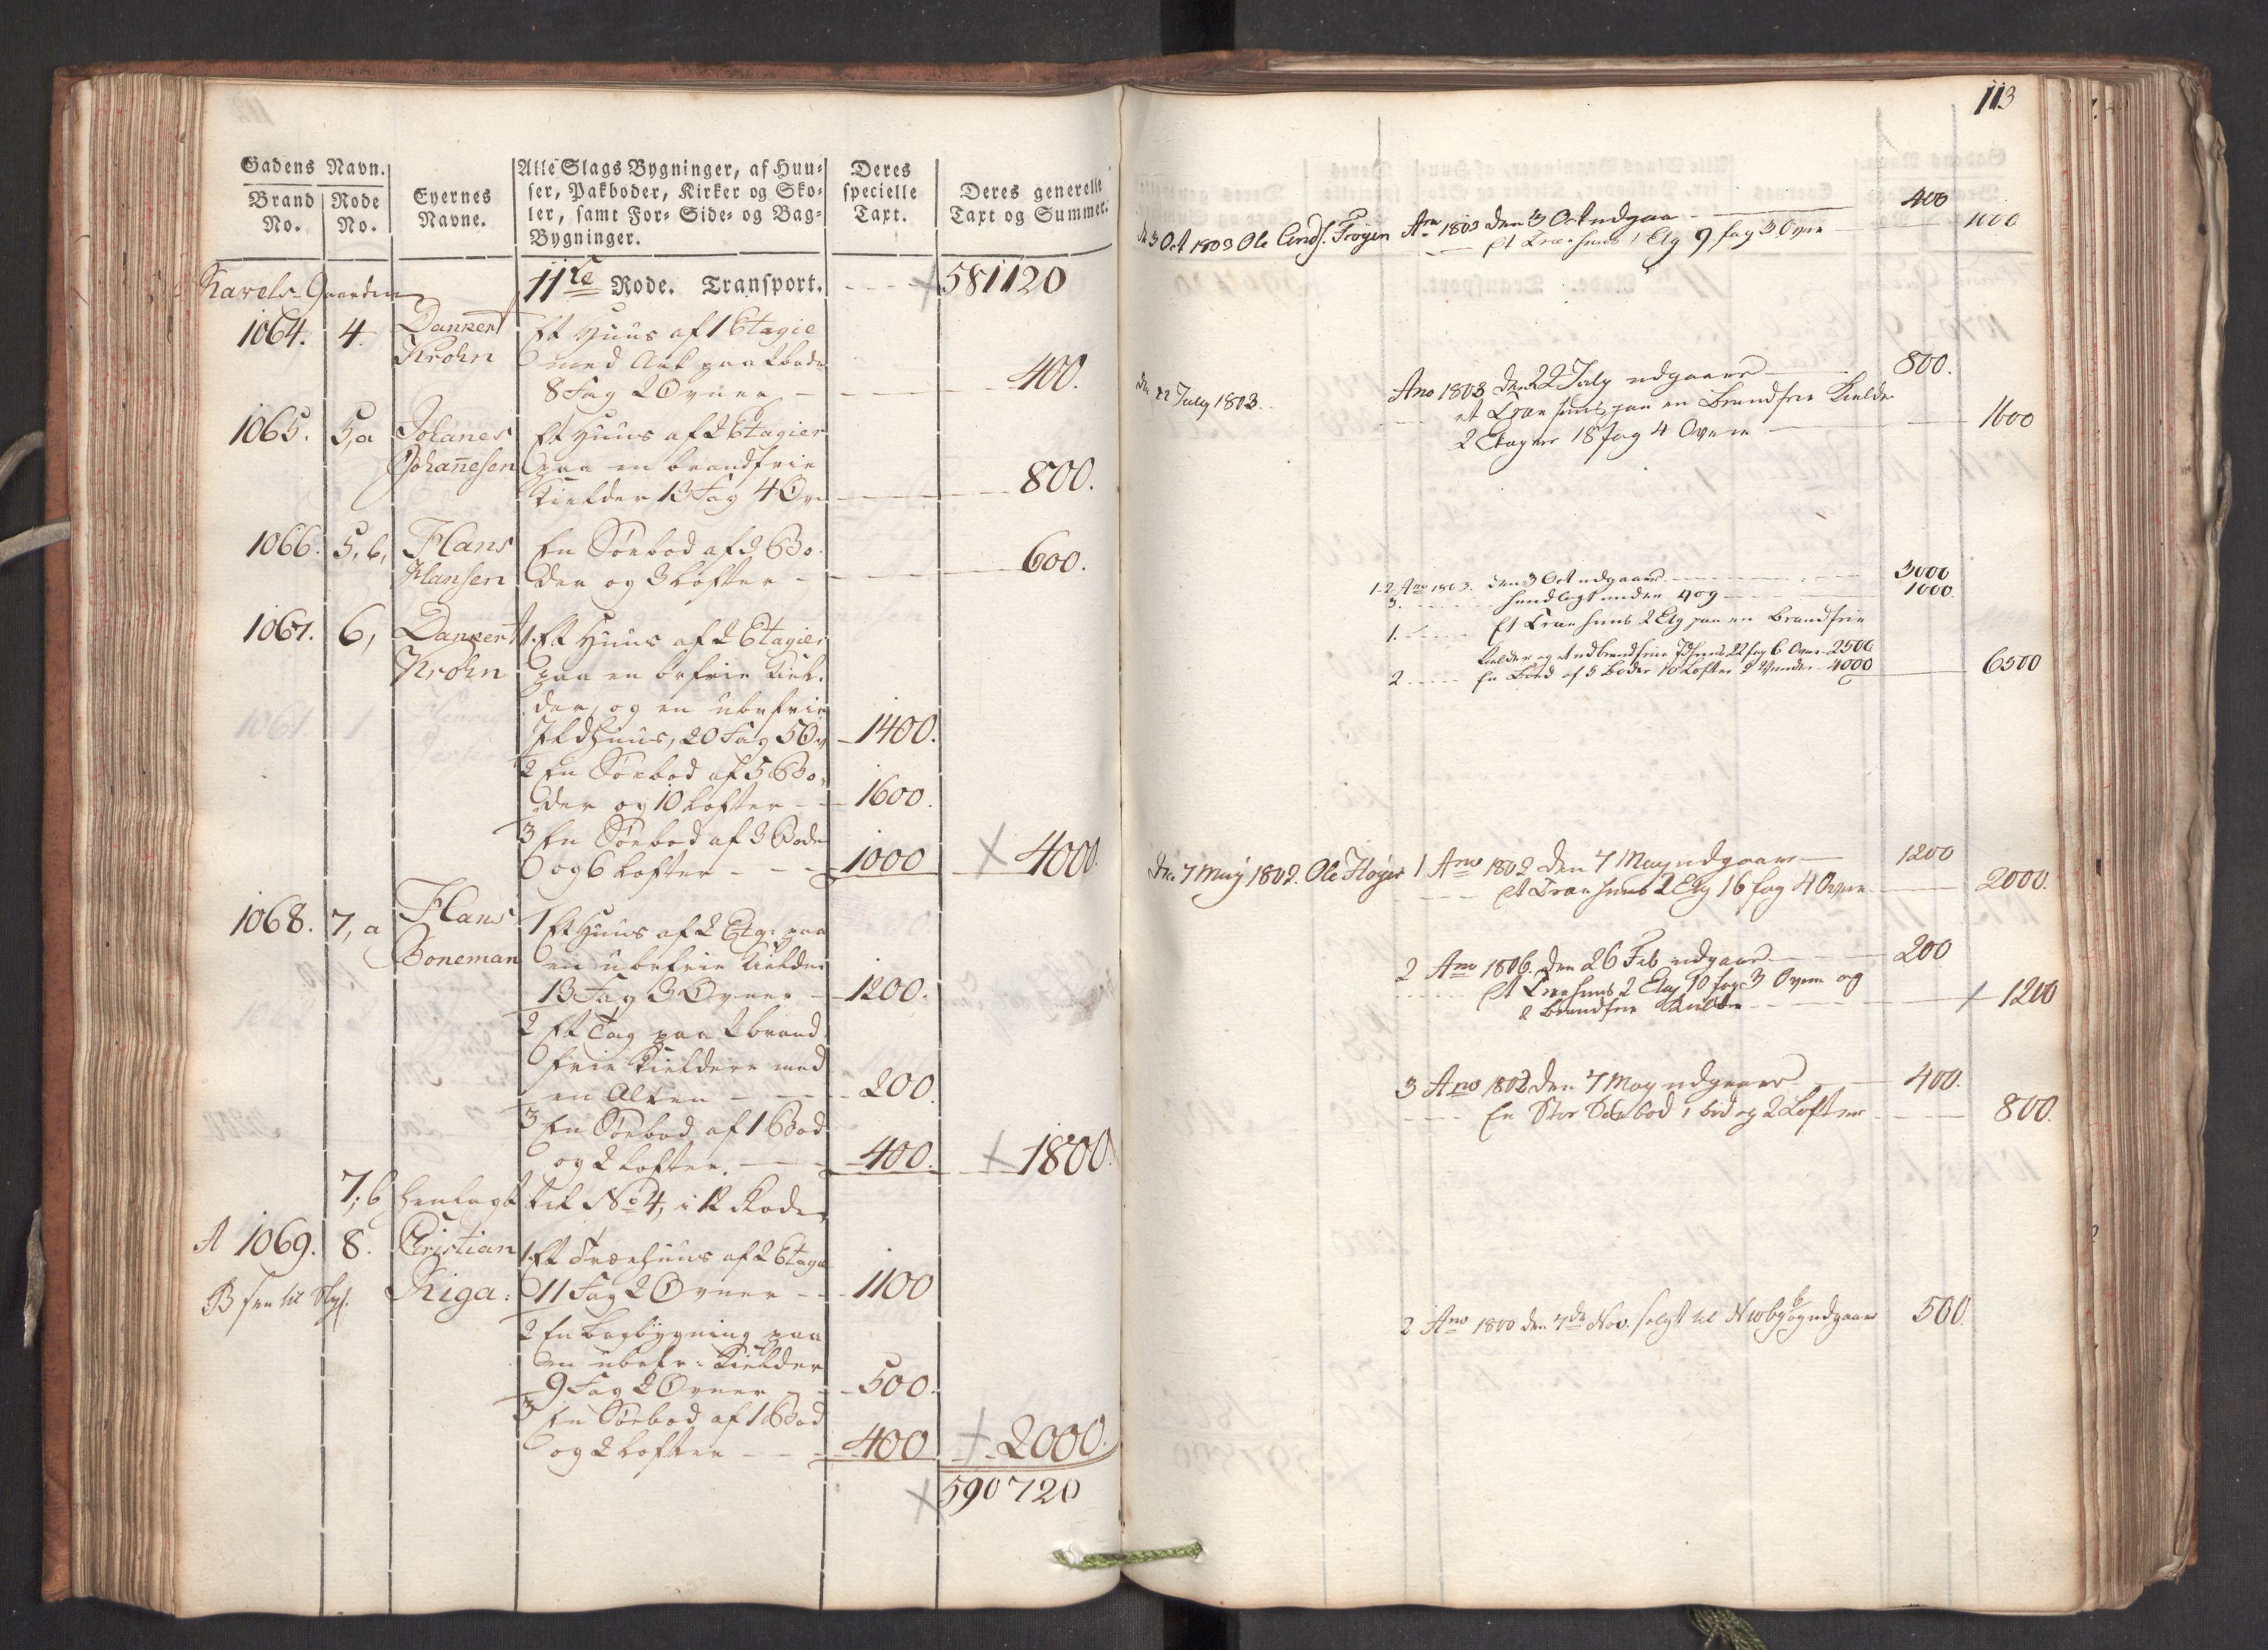 Gadens Navn.
Brand No. | Rode No. | Eyernes Navne. | Alle Slags Bygninger, af Huu-
ser, Pakboder, Kirker og Sko-
ler, samt For- Side- og Bag-
Bygninger. | Deres specielle Taxt. | Deres generelle Taxt og Summer.
Kavels-Gaarden 11te Rode. Transport. 581120
1064. 4. Dankert Et Huus af 1 Etagie
Krohn med Ark paa 2 bode
8 Fag 2 Ovner 400.
1065. 5,a Johanes Et Huus af 2 Etagier
Johanesen paa en brandfrie
Kielder 13 Fag 4 Ov 800.
1066. 5,b, Hans En Söebod af 3 Bo-
Hansen der og 3 Lofter 600.
1067. 6, Dankert 1. Et Huus af 2 Etagier
Krohn paa en brfrie Kiel-
der, og en ubrfrie
Ildhuus, 20 Fag 5 Ov 1400.
2 En Söebod af 5 Bo-
der og 10 Lofter 1600.
3 En Söebod af 3 Bode
og 6 Lofter 1000 4000.
1068. 7,a Hans 1 Et Huus af 2 Etg: paa
Boneman en ubrfrie Kielder
13 Fag 3 Ovner 1200.
2 Et Tag paa 2 brand
frie Kieldere med
en Alken 200.
3 En Söebod af 1 Bod
og 2 Lofter. 400. 1800.
7,b henlagt til No 4, i 12 Rode
A 1069. 8. Christian 1. Et Træehuus af 2 Etage
B see til Riga: 11 Fag 2 Ovner 1100
2 En bagbygning paa
en ubrfr: Kielder
9 Fag 2 Ovner 500.
3 En Söebod af 1 Bod
og 2 Lofter 400 2000.
590720
113
d 3 Oct 1803 Ole And. Fröyen Ano 1803 den 3 Oct udgaar 400
Et Træehuus 1 Etg 9 fag 3 Ovne 1000
den 22 July 1803. Ano 1803 den 22 July udgaaer 800.
et Træe huus paa en Brandfrie Kielder
2 Etager 18 fag 4 Ovne 1600
1-2 Ano 1803. den 3 Oct udgaaer 3000
3. henlagt under 409 1000
1. Et Træe huus 2 Etg paa en Brandfrie
Kielder og et udbrandfrie Ildhuus 22 fag 6 Ovne 2500
2 En Bod af 5 Boder 10 Lofter 4000 6500
den 7 May 1802. Ole Höyer 1 Ano 1802 den 7 May udgaaer 1200
et Træe huus 2 Etg 16 fag 4 Ovne 2000.
2 Ano 1806. den 26 Feb udgaaer 200
et Træehuus 2 Etag 10 fag 3 Ovne og
2 Brandfrie Kielder 1200
3 Ano 1802 den 7 May udgaaer 400.
En Stor Söebod 1 bod og 2 Lofter 800.
2 Ano 1800 den 7de Nov. solgt til N 10 b og udgaaer 500.